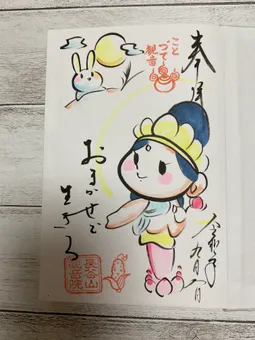 奉拝
ことづて
観音
おまかせで
生きる
令和
九月
長谷山
観音院